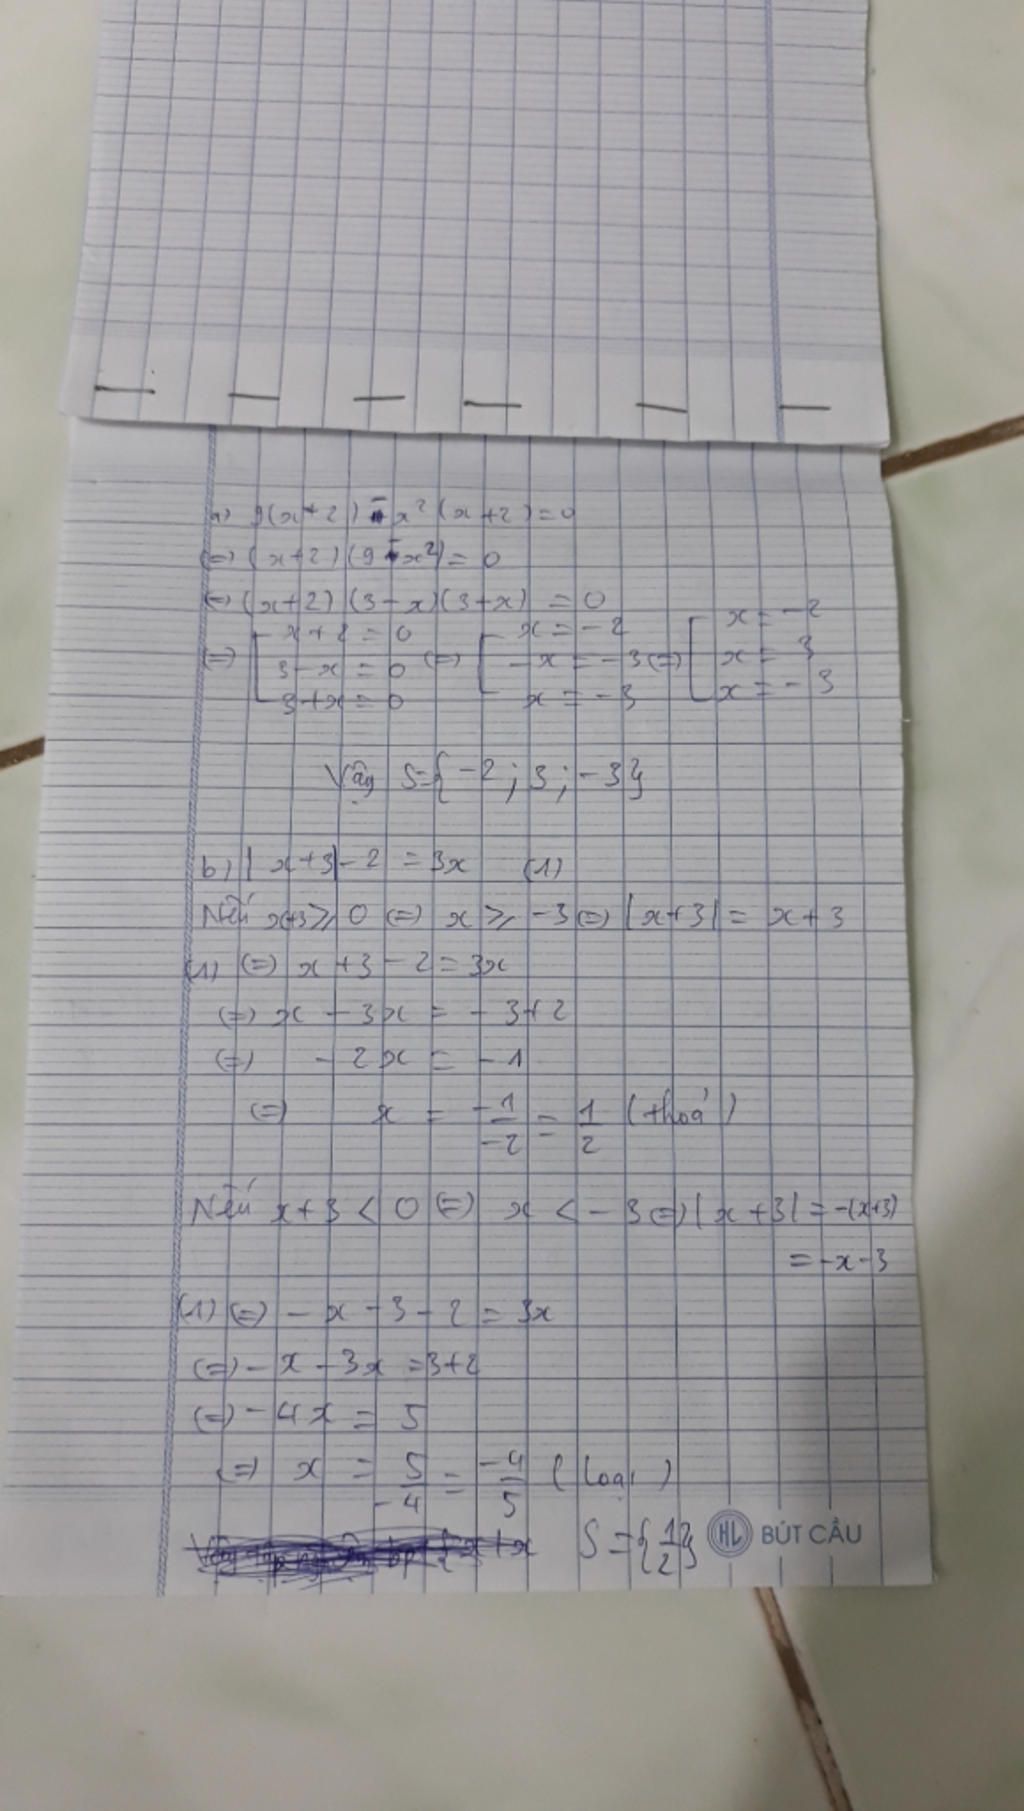 a) 9(x+2) - x² (x+2) = 0
(=) (x+2) (9 - x²) = 0
(=) (x+2) (3-x)(3+x) = 0
(=) [ x+2 = 0 (=) [ x = -2 (=) [ x = -2
3-x = 0 -x = -3 x = 3
3+x = 0 x = -3 x = -3
Vậy S={-2; 3; -3}
b) |x+3| - 2 = 3x (1)
Nếu x+3 ⩾ 0 (=) x ⩾ -3 (=) |x+3| = x+3
(1) (=) x+3-2 = 3x
(=) x - 3x = -3+2
(=) -2x = -1
(=) x = -1/-2 = 1/2 (thoả)
Nếu x+3 < 0 (=) x < -3 (=) |x+3| = -(x+3)
= -x-3
(1) (=) -x-3-2 = 3x
(=) -x-3x = 3+2
(=) -4x = 5
(=) x = 5/-4 = -4/5 (loại)
S = {1/2} HL BÚT CẦU